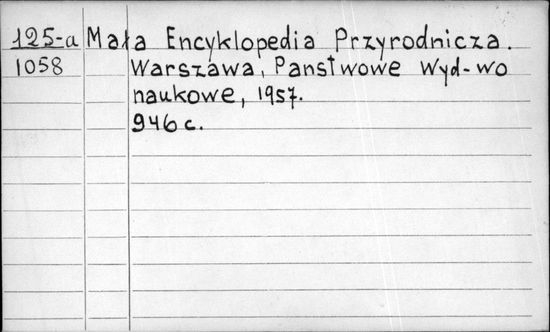 125-a Mała Encyklopedia Przyrodnicza.
1058 Warszawa, Panstwowe Wyd-wo
naukowe, 1957.
946 c.